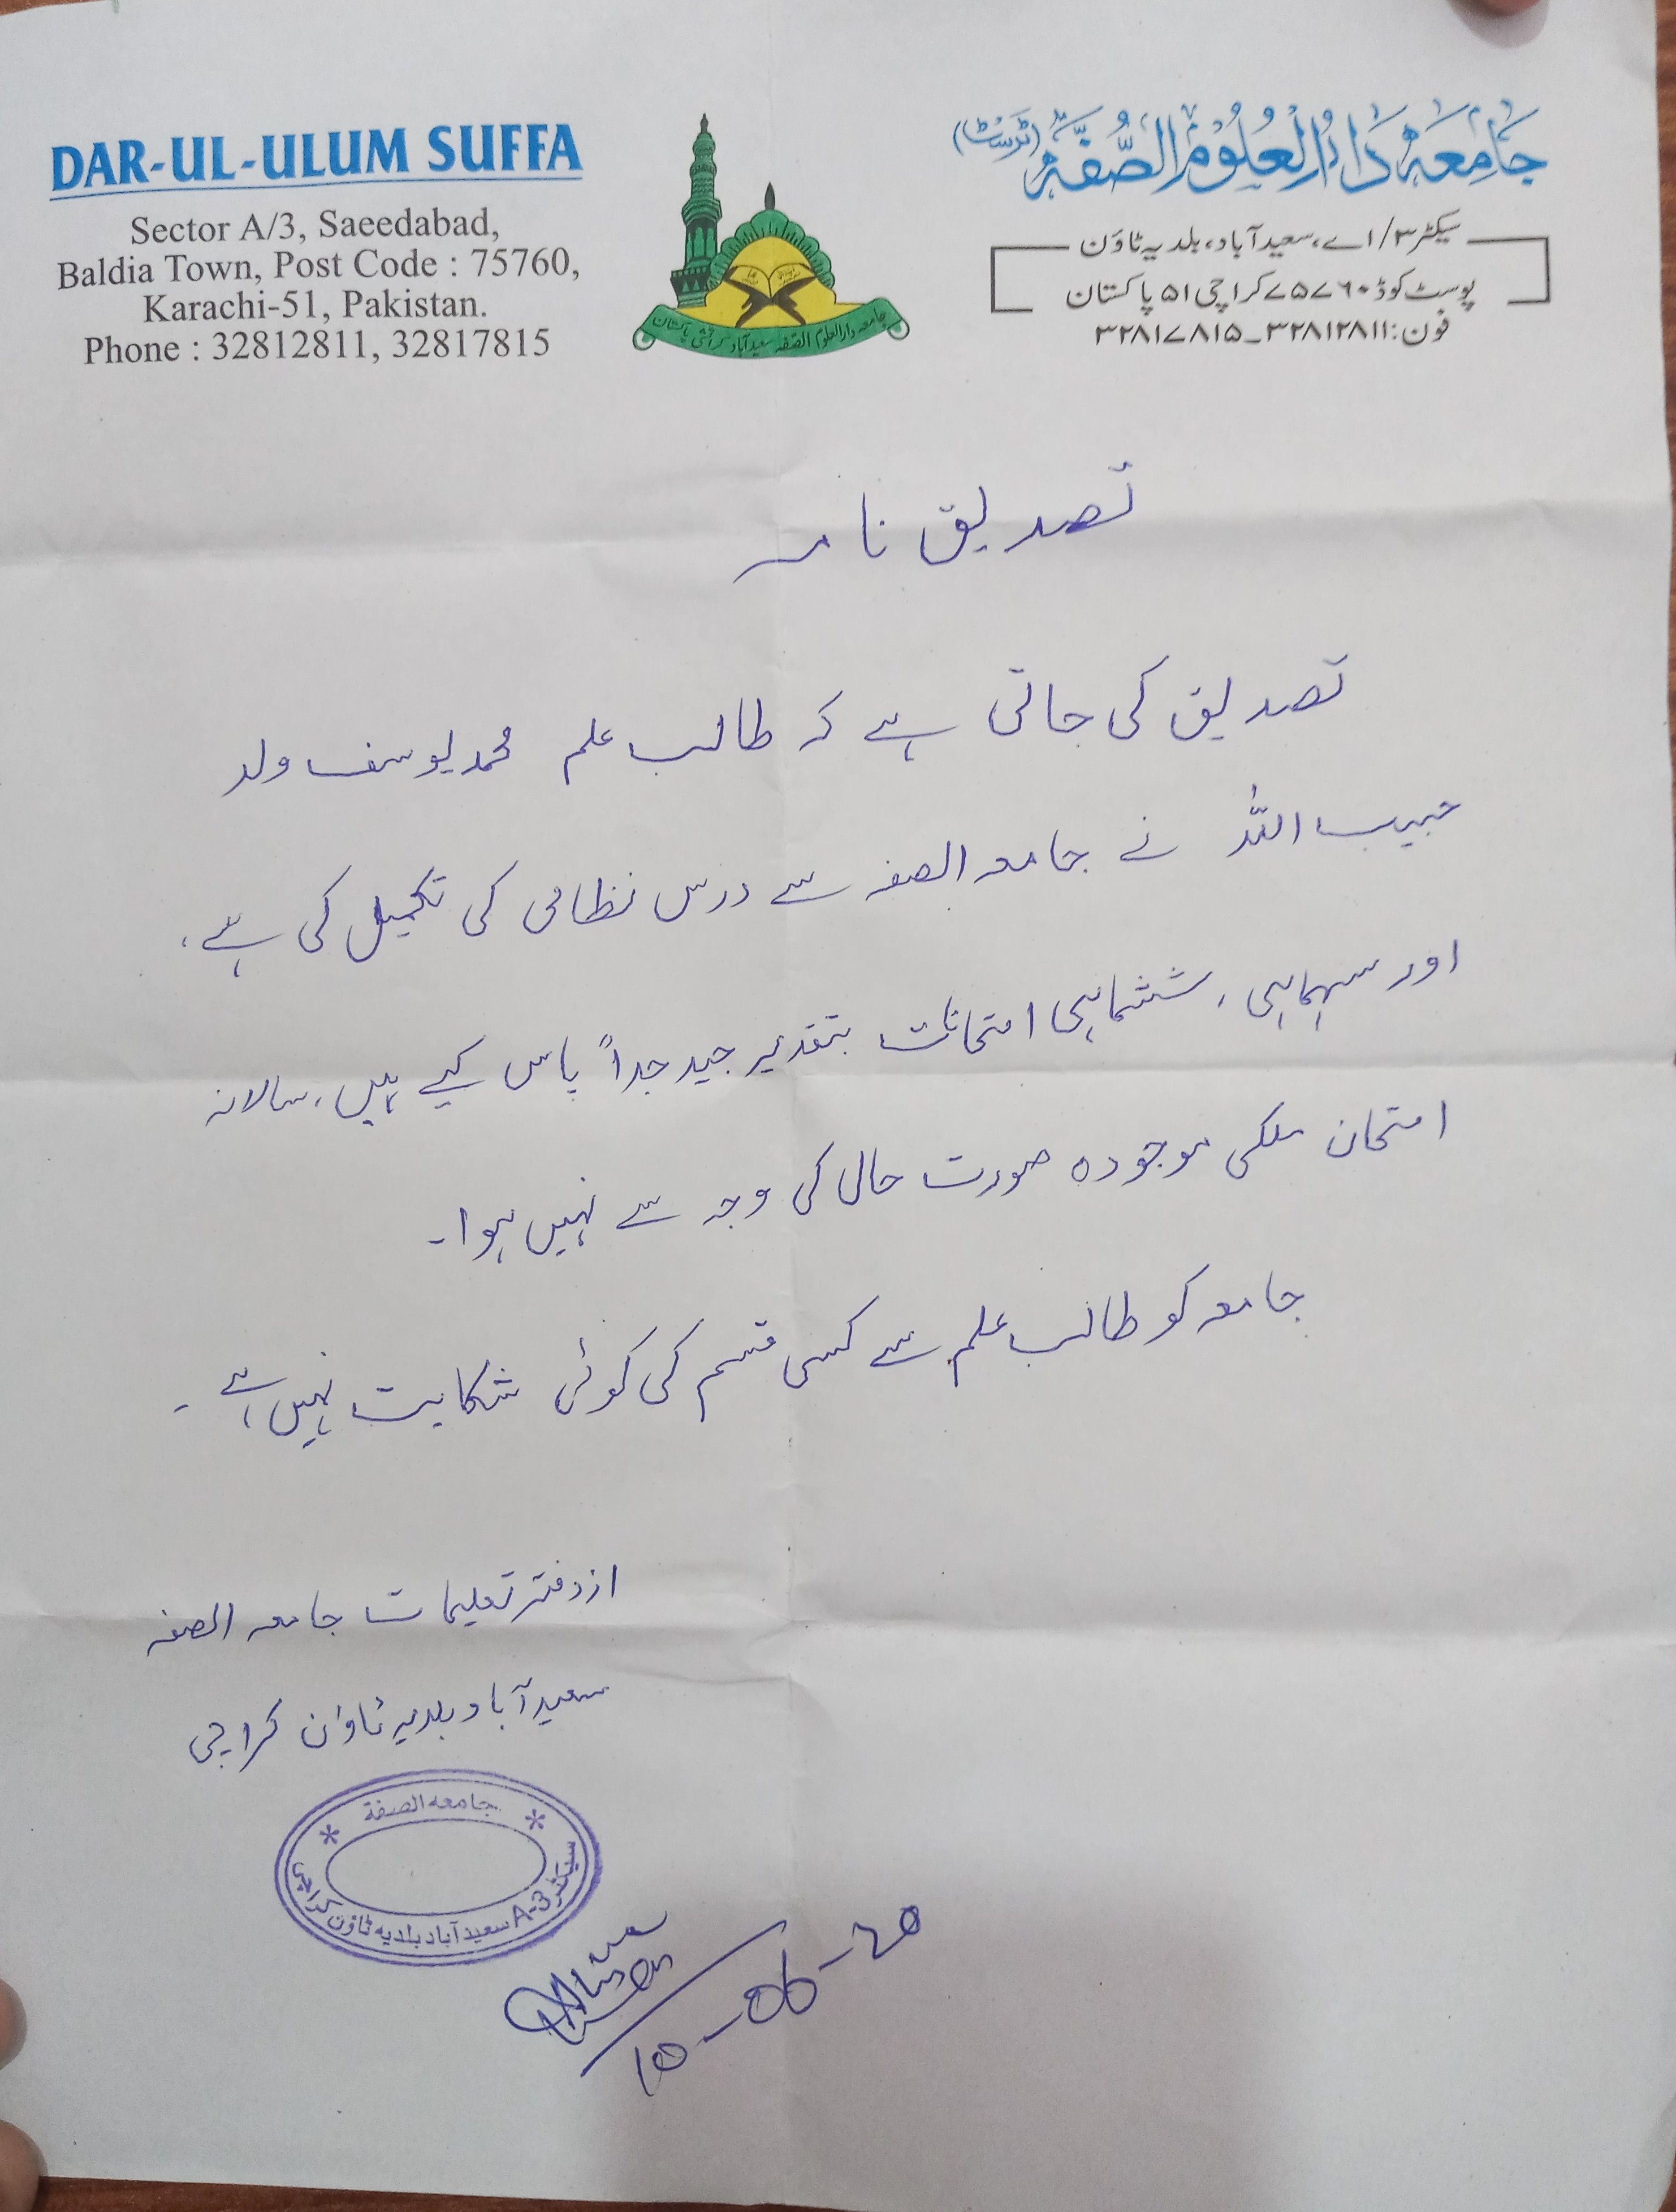 DAR-UL-ULUM SUFFA
Sector A/3, Saeedabad,
Baldia Town, Post Code : 75760,
Karachi-51, Pakistan.
Phone : 32812811, 32817815
جامعہ دارالعلوم الصفہ
جَامِعَہ دَارُالعُلُوم الصُّفَّہ (ٹرسٹ)
سیکٹر ۳/اے، سعید آباد، بلدیہ ٹاؤن
پوسٹ کوڈ ۷۵۷۶۰ کراچی ۵۱ پاکستان
فون: ۳۲۸۱۲۸۱۱ - ۳۲۸۱۷۸۱۵
تصدیق نامہ
تصدیق کی جاتی ہے کہ طالب علم محمد یوسف ولد
حبیب اللہ نے جامعہ الصفہ سے درس نظامی کی تکمیل کی ہے،
اور سہماہی، ششماہی امتحانات بتقدیر جید جداً پاس کیے ہیں، سالانہ
امتحان ملکی موجودہ صورت حال کی وجہ سے نہیں ہوا۔
جامعہ کو طالب علم سے کسی قسم کی کوئی شکایت نہیں ہے۔
از دفتر تعلیمات جامعہ الصفہ
سعید آباد بلدیہ ٹاؤن کراچی
جامعه الصفة
سیکٹر A-3 سعید آباد بلدیہ ٹاؤن کراچی
10-06-20